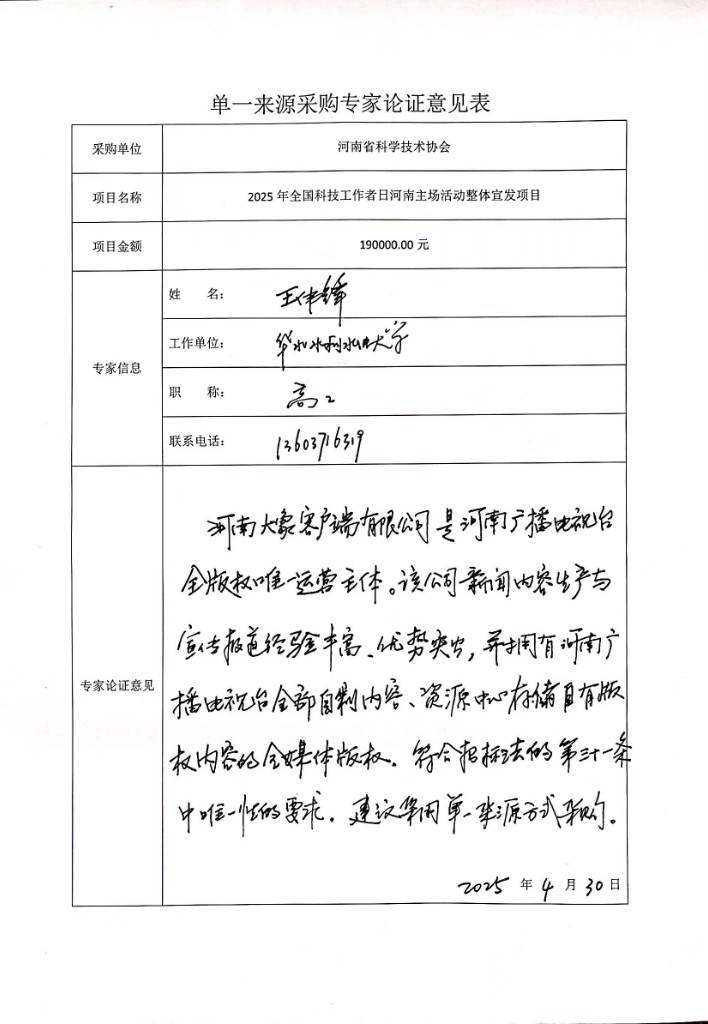 单一来源采购专家论证意见表
采购单位 河南省科学技术协会
项目名称 2025年全国科技工作者日河南主场活动整体宣发项目
项目金额 190000.00元
专家信息
姓 名： 王伟锋
工作单位： 华北水利水电大学
职 称： 高工
联系电话： 13603716319
专家论证意见
河南大象客户端有限公司是河南广播电视台
全版权唯一运营主体。该公司新闻内容生产与
宣传报道经验丰富、优势突出，并拥有河南广
播电视台全部自制内容、资源中心存储自有版
权内容的全媒体版权。符合招标法的第三十一条
中唯一性的要求。建议采用单一来源方式采购。
2025年4月30日